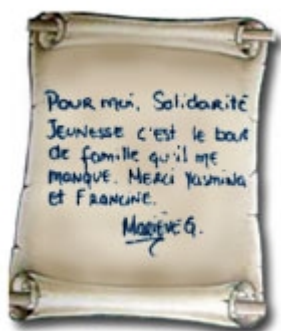 Pour moi, Solidarité
Jeunesse c'est le bout
de famille qu'il me
manque. Merci Yasmina
et Francine.
Mariève G.